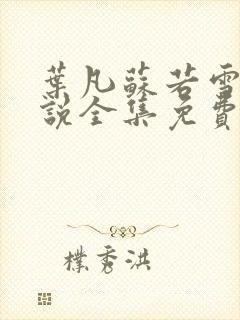 葉凡蘇若雪
說全集免費
樸秀洪